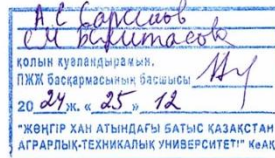 А С Сарсенов
С М Бахитасова
қолын куәландырамын.
ПЖЖ басқармасының басшысы
20 24 ж. « 25 » 12
"ЖӘҢГІР ХАН АТЫНДАҒЫ БАТЫС ҚАЗАҚСТАН
АГРАРЛЫҚ-ТЕХНИКАЛЫҚ УНИВЕРСИТЕТІ" КеАҚ